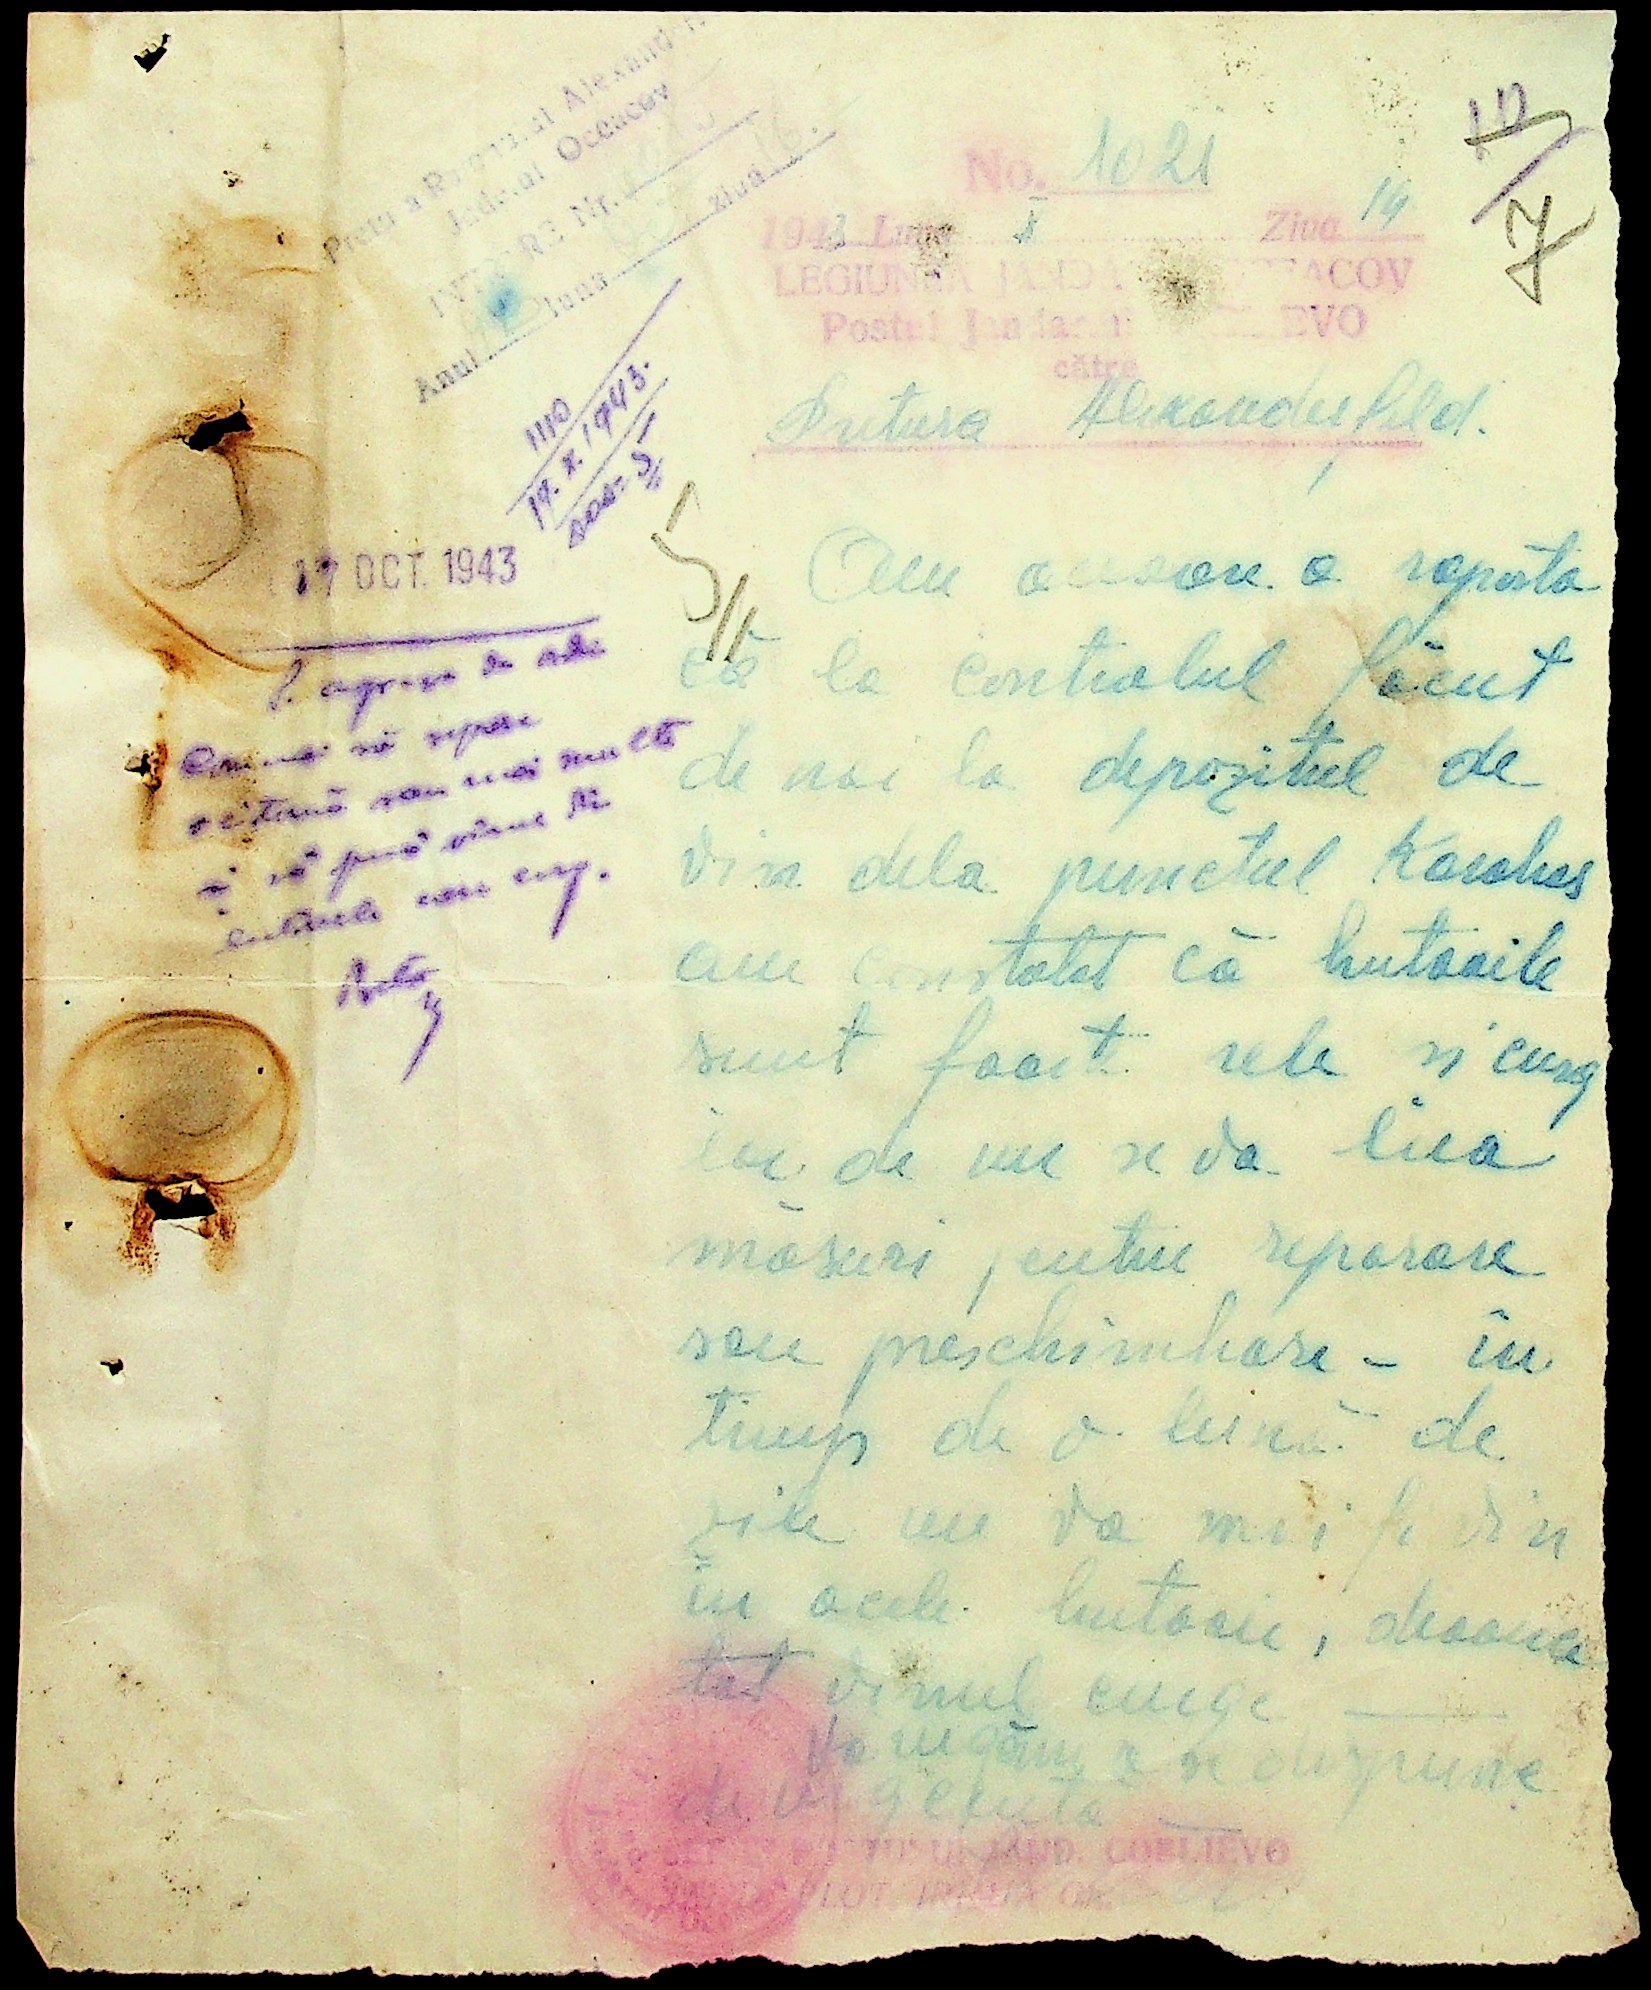 Pretura Raional Alexand
Judetul Oceacov
INTRARE Nr.
Anul luna ziua 16.
No. 1021
1943 Luna X Ziua 14
LEGIUNEA JANDA OCEACOV
Postul Jandarmi EVO
către
Pretura Alexanderfeld.
17
7
1110
17.X.1943.
Dos. 5/II
5/II
17 OCT. 1943
Am onoare a raporta
că la controlul făcut
de noi la depozitul de
vin dela punctul Karahas
am constatat că butoaile
sunt foarte rele si curg
iar de nu se va lua
măsuri pentru reparare
sau preschimbare - în
timp de o lună de
zile nu va mai fi vin
în acele butoaie, deoarece
tot vinul curge
Va rugăm a se dispune
de urgenta
să repare
o cisternă sau mai multe
si să pună vinul din
butoaiele care curg.
SEF POSTULUI JAND. COBLIEVO
PLOT.